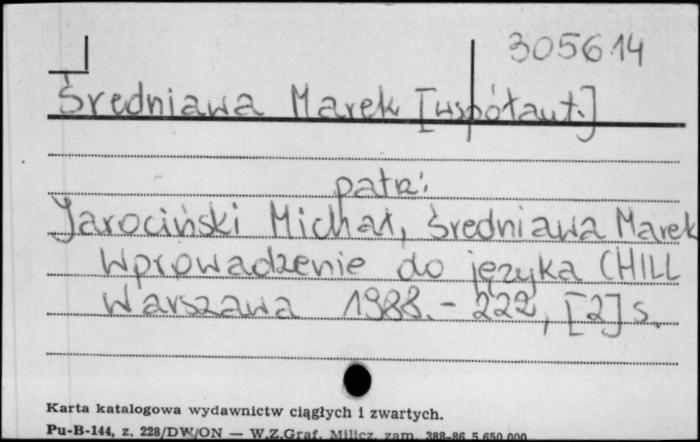 305614
Średniawa Marek [współaut.]
patrz:
Jarociński Michał, Średniawa Marek
Wprowadzenie do języka CHILL
Warszawa 1988. - 222, [2] s.
Karta katalogowa wydawnictw ciągłych i zwartych.
Pu-B-144, z. 228/DW/ON — W.Z.Graf. Milicz, zam. 388-86 5.650.000